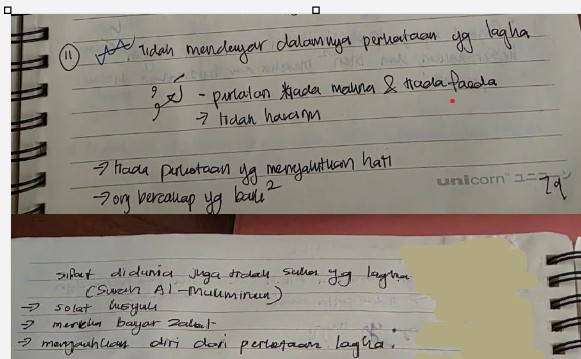 11 Tidak mendengar dalamnya perkataan yg lagha
- perkataan tiada makna & tiada faeda
→ tidak haram
→ tiada perkataan yg menyakitkan hati
→ org bercakap yg baik²
unicorn
29
sifat didunia juga tidak suka yg lagha
(Surah Al-Mukminun)
→ solat khusyuk
→ mereka bayar zakat
→ menjauhkan diri dari perkataan lagha.